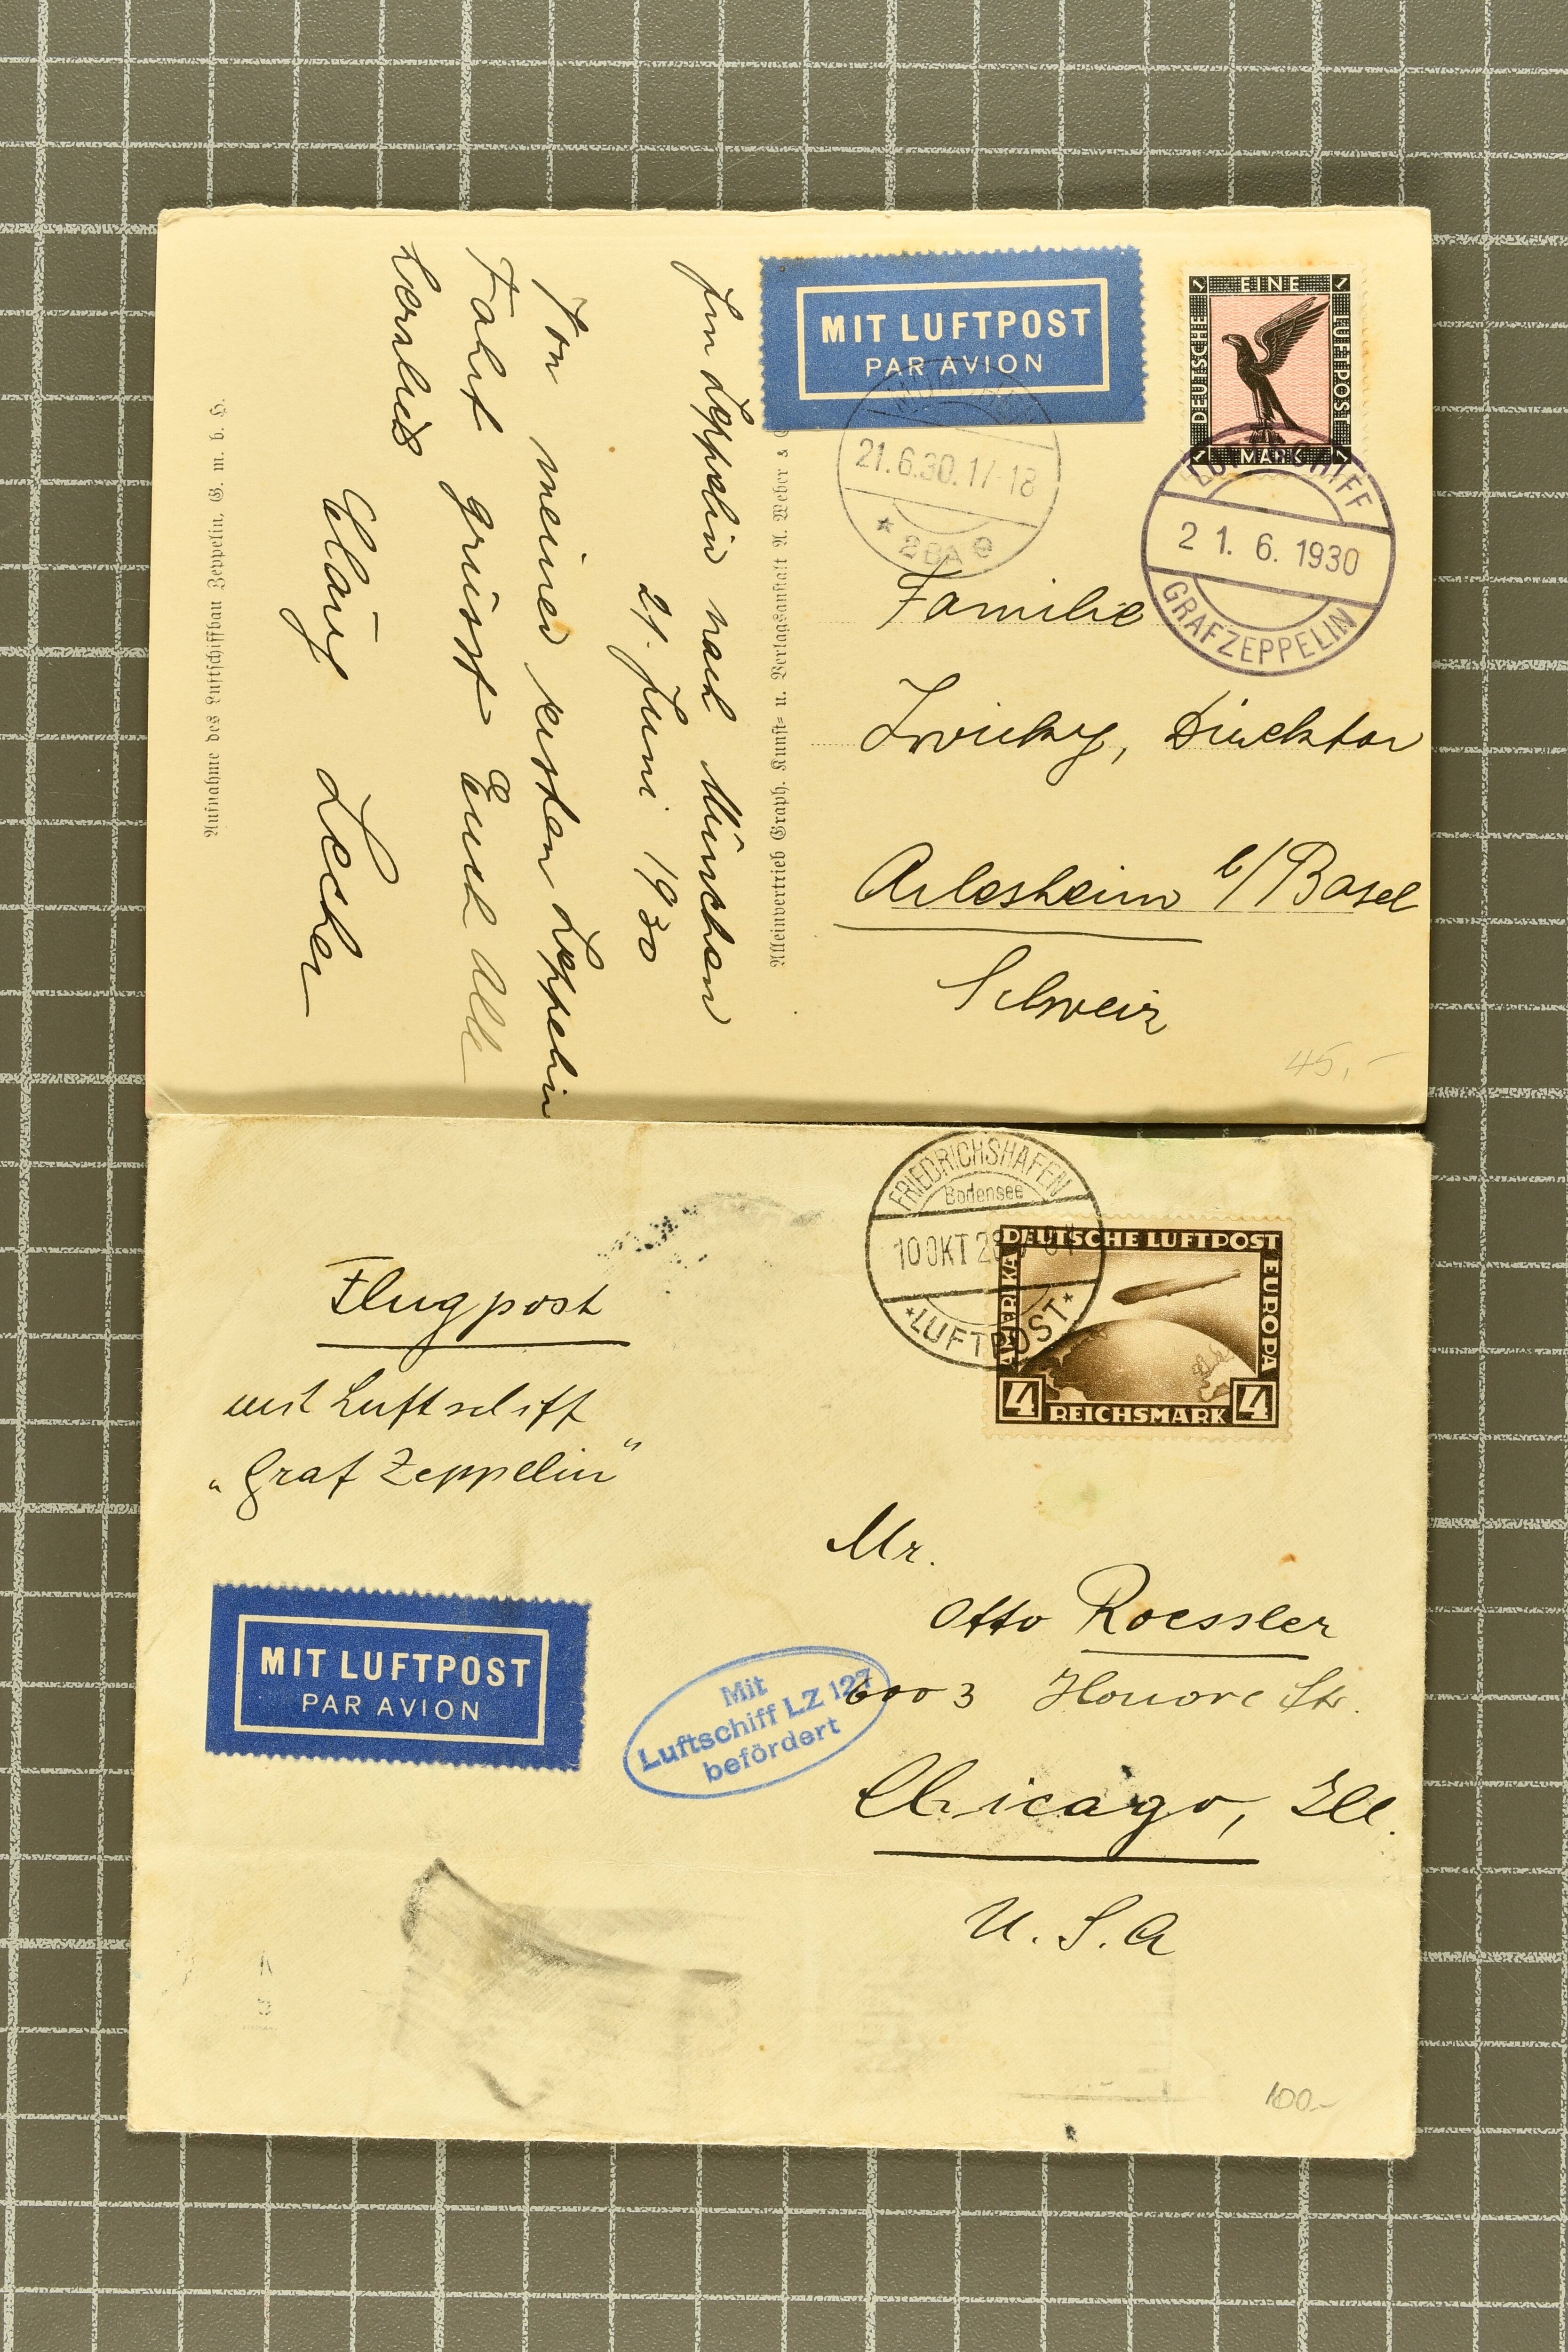 EINE
DEUTSCHE
LUFTPOST
1 MARK 1
MIT LUFTPOST
PAR AVION
21.6.30.17-18
LUFTSCHIFF
21.6.1930
GRAF ZEPPELIN
Familie
Zwicky, Direktor
Arlesheim b/Basel
Schweiz
45,-
Im Zeppelin nach München
21. Juni 1930
Von meiner ersten Zeppelin
Fahrt grüsst Euch Alle
herzlich
Aufnahme des Luftschiffbau Zeppelin, G. m. b. H.
Alleinvertrieb Graph. Kunst- u. Verlagsanstalt A. Weber &
FRIEDRICHSHAFEN
Bodensee
10 OKT 28
* LUFTPOST *
DEUTSCHE LUFTPOST
AMERIKA
EUROPA
4 REICHSMARK 4
Flugpost
mit Luftschiff
„Graf Zeppelin“
MIT LUFTPOST
PAR AVION
Mit
Luftschiff LZ 127
befördert
Mr.
Otto Roessler
6003 Honore Str.
Chicago, Ill.
U.S.A
100.-